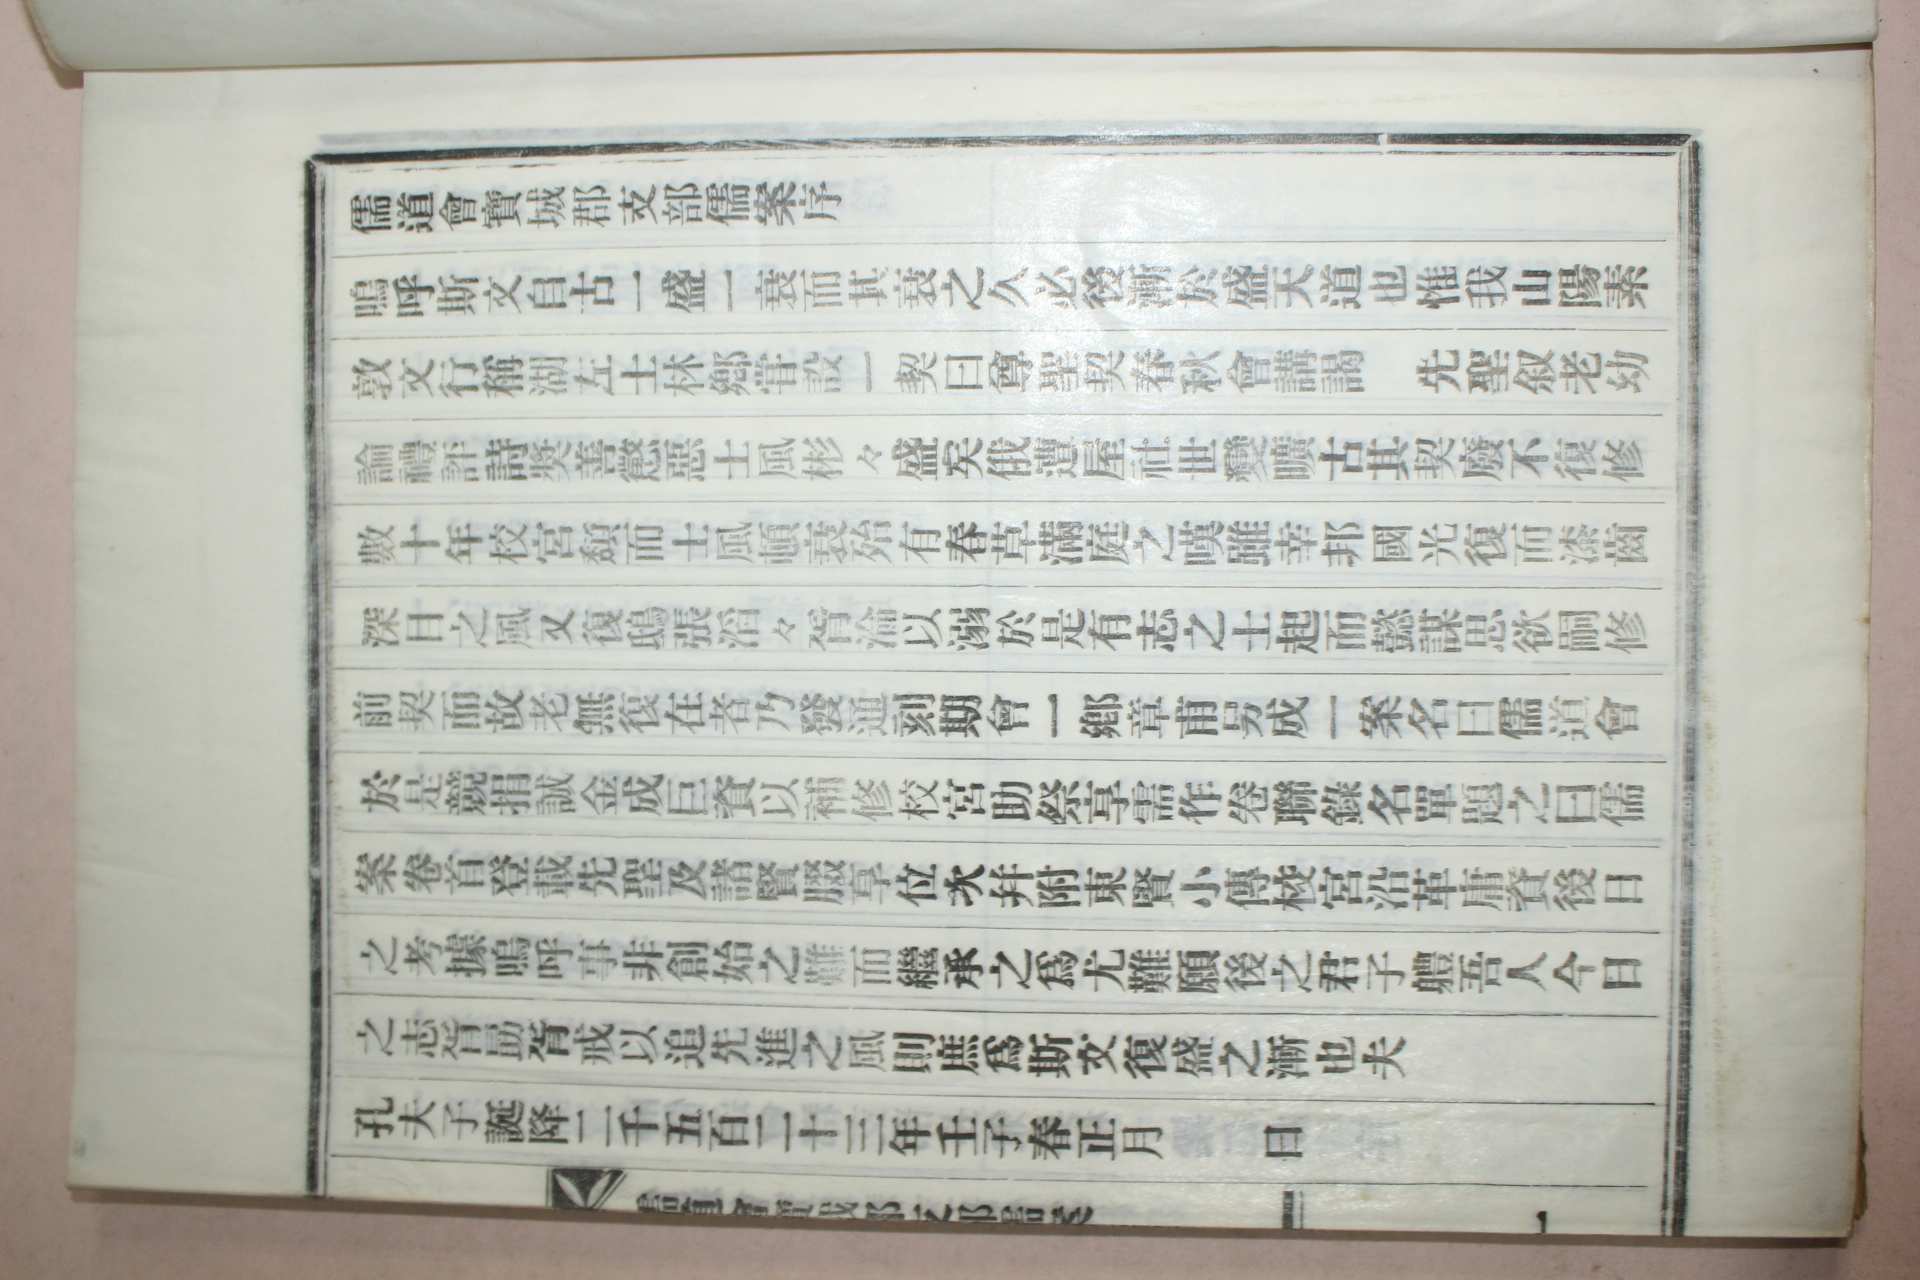 儒道會寶城郡支部儒案序
嗚呼斯文自古一盛一衰而其衰之久必後漸於盛天道也惟我山陽素
敦文行稱湖左士林鄉甞設一契曰尊聖契春秋會講謁　先聖叙老幼
論禮評詩獎善懲惡士風彬々盛矣俄遭屋社世變曠古其契廢不復修
數十年校宮頹而士風頓衰殆有春草滿庭之嘆雖幸邦國光復而漆齒
深目之風又復鴟張滔々胥淪以溺於是有志之士起而懿謀思欲嗣修
前契而故老無復在者乃發通刻期會一鄉章甫另成一案名曰儒道會
於是競捐誠金成巨資以補修校宮助祭享需作卷聯錄名單題之曰儒
案卷首登載先聖及諸賢腏享位次幷附東賢小傳校宮沿革庸資後日
之考據嗚呼事非創始之難而繼承之爲尤難願後之君子軆吾人今日
之志胥勗胥戒以追先進之風則庶爲斯文復盛之漸也夫
孔夫子誕降二千五百二十三年壬子春正月　　日
儒道會寶城郡支部儒案
一